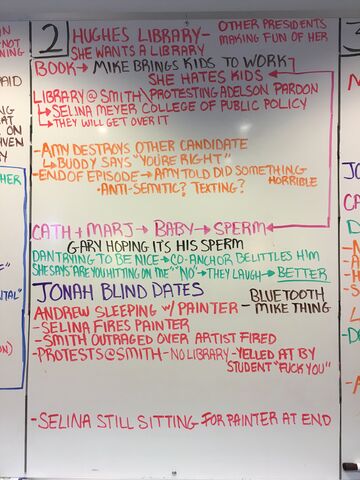 2
HUGHES LIBRARY- OTHER PRESIDENTS
SHE WANTS A LIBRARY MAKING FUN OF HER
BOOK → MIKE BRINGS KIDS TO WORK
SHE HATES KIDS
LIBRARY @ SMITH PROTESTING ADELSON PARDON
↳ SELINA MEYER COLLEGE OF PUBLIC POLICY
↳ THEY WILL GET OVER IT
-AMY DESTROYS OTHER CANDIDATE
↳ BUDDY SAYS "YOU'RE RIGHT"
-END OF EPISODE → AMY TOLD DID SOMETHING
HORRIBLE
·ANTI-SEMITIC? TEXTING?
CATH + MARJ → BABY → SPERM
GARY HOPING IT'S HIS SPERM
DAN TRYING TO BE NICE → CO-ANCHOR BELITTLES HIM
SHE SAYS "ARE YOU HITTING ON ME" "NO" → THEY LAUGH → BETTER
JONAH BLIND DATES - BLUETOOTH
ANDREW SLEEPING W/ PAINTER - MIKE THING
- SELINA FIRES PAINTER
- SMITH OUTRAGED OVER ARTIST FIRED
-PROTESTS @ SMITH - NO LIBRARY - YELLED AT BY
STUDENT "FUCK YOU"
-SELINA STILL SITTING FOR PAINTER AT END
IN
-NOT
PAID
ON
HER